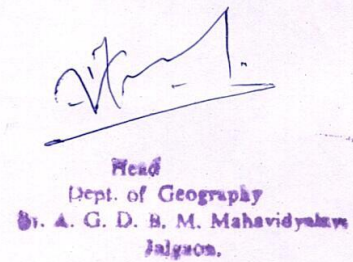 Head
Dept. of Geography
Dr. A. G. D. B. M. Mahavidyalaya
Jalgaon.